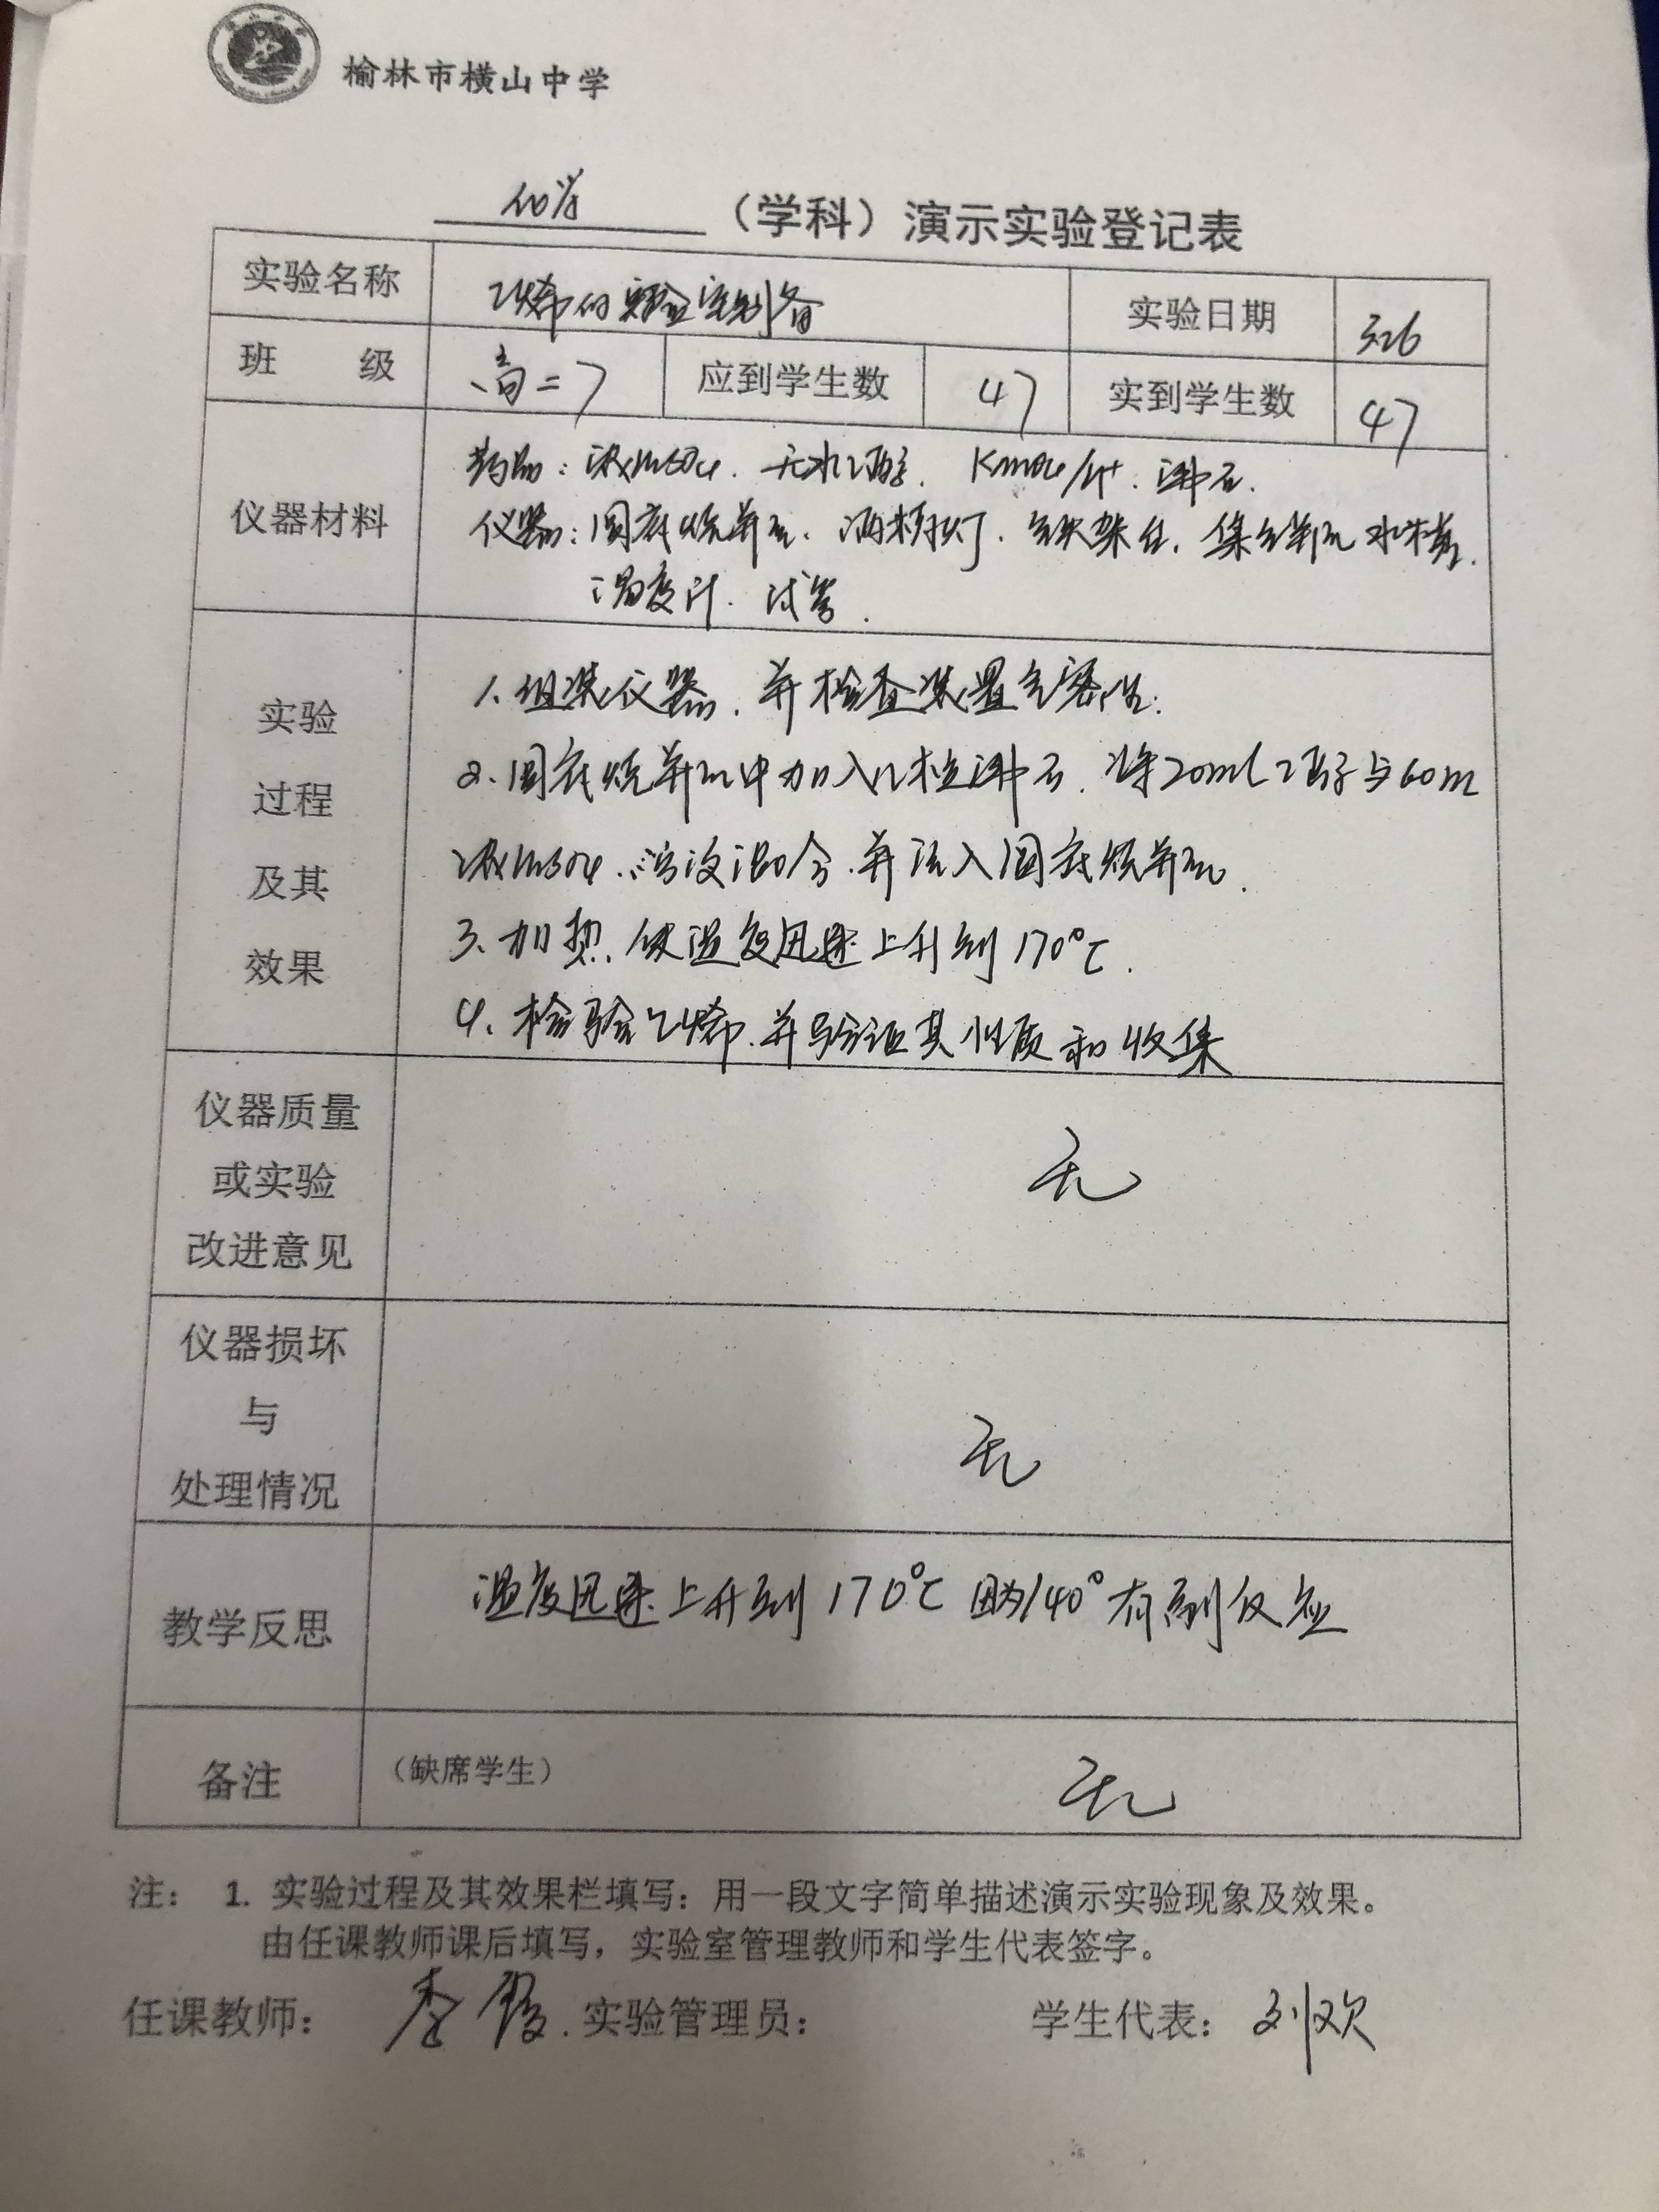 榆林市横山中学
化学（学科）演示实验登记表
实验名称 乙烯的实验室制备 实验日期 3.26
班 级 高二7 应到学生数 47 实到学生数 47
药品：浓H₂SO₄. 无水乙醇. KMnO₄/H⁺. 沸石.
仪器材料
仪器：圆底烧瓶. 酒精灯. 铁架台. 集气瓶 水槽.
温度计. 试管.
实验
过程
及其
效果
1、组装仪器，并检查装置气密性.
2、圆底烧瓶中加入几粒沸石，将20ml乙醇与60ml
浓H₂SO₄.溶液混合.并注入圆底烧瓶.
3、加热，使温度迅速上升到170℃.
4、检验乙烯，并验证其性质和收集
仪器质量
或实验
改进意见
无
仪器损坏
与
处理情况
无
教学反思
温度迅速上升到170℃ 因为140°有副反应
备注 （缺席学生） 无
注： 1. 实验过程及其效果栏填写：用一段文字简单描述演示实验现象及效果。
由任课教师课后填写，实验室管理教师和学生代表签字。
任课教师： 李 实验管理员： 学生代表： 刘欢